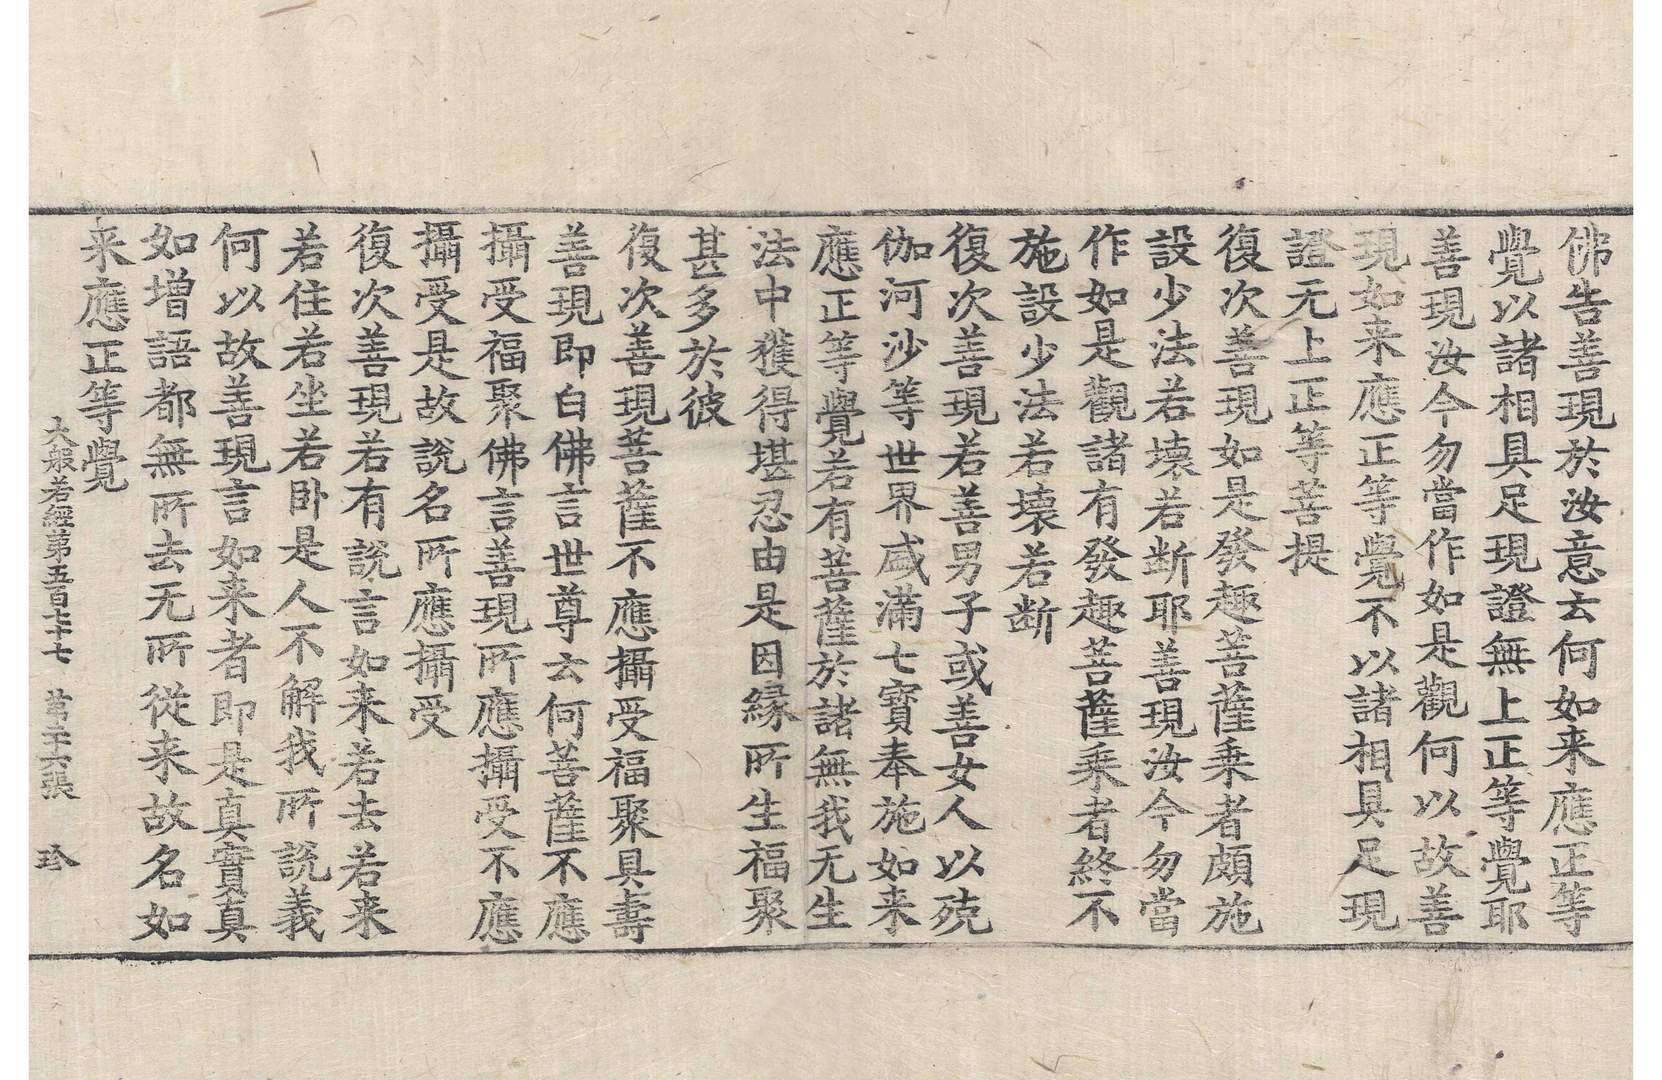 佛告善現於汝意云何如来應正等
覺以諸相具足現證無上正等覺耶
善現汝今勿當作如是觀何以故善
現如来應正等覺不以諸相具足現
證无上正等菩提
復次善現如是發趣菩薩乗者頗施
設少法若壞若断耶善現汝今勿當
作如是觀諸有發趣菩薩乗者終不
施設少法若壞若断
復次善現若善男子或善女人以殑
伽河沙等世界盛滿七寶奉施如来
應正等覺若有菩薩於諸無我无生
法中獲得堪忍由是因縁所生福聚
甚多於彼
復次善現菩薩不應攝受福聚具壽
善現即白佛言世尊云何菩薩不應
攝受福聚佛言善現所應攝受不應
攝受是故說名所應攝受
復次善現若有說言如来若去若来
若住若坐若卧是人不解我所說義
何以故善現言如来者即是真實真
如增語都無所去无所從来故名如
来應正等覺
大般若經第五百七十七　第十六張　珍